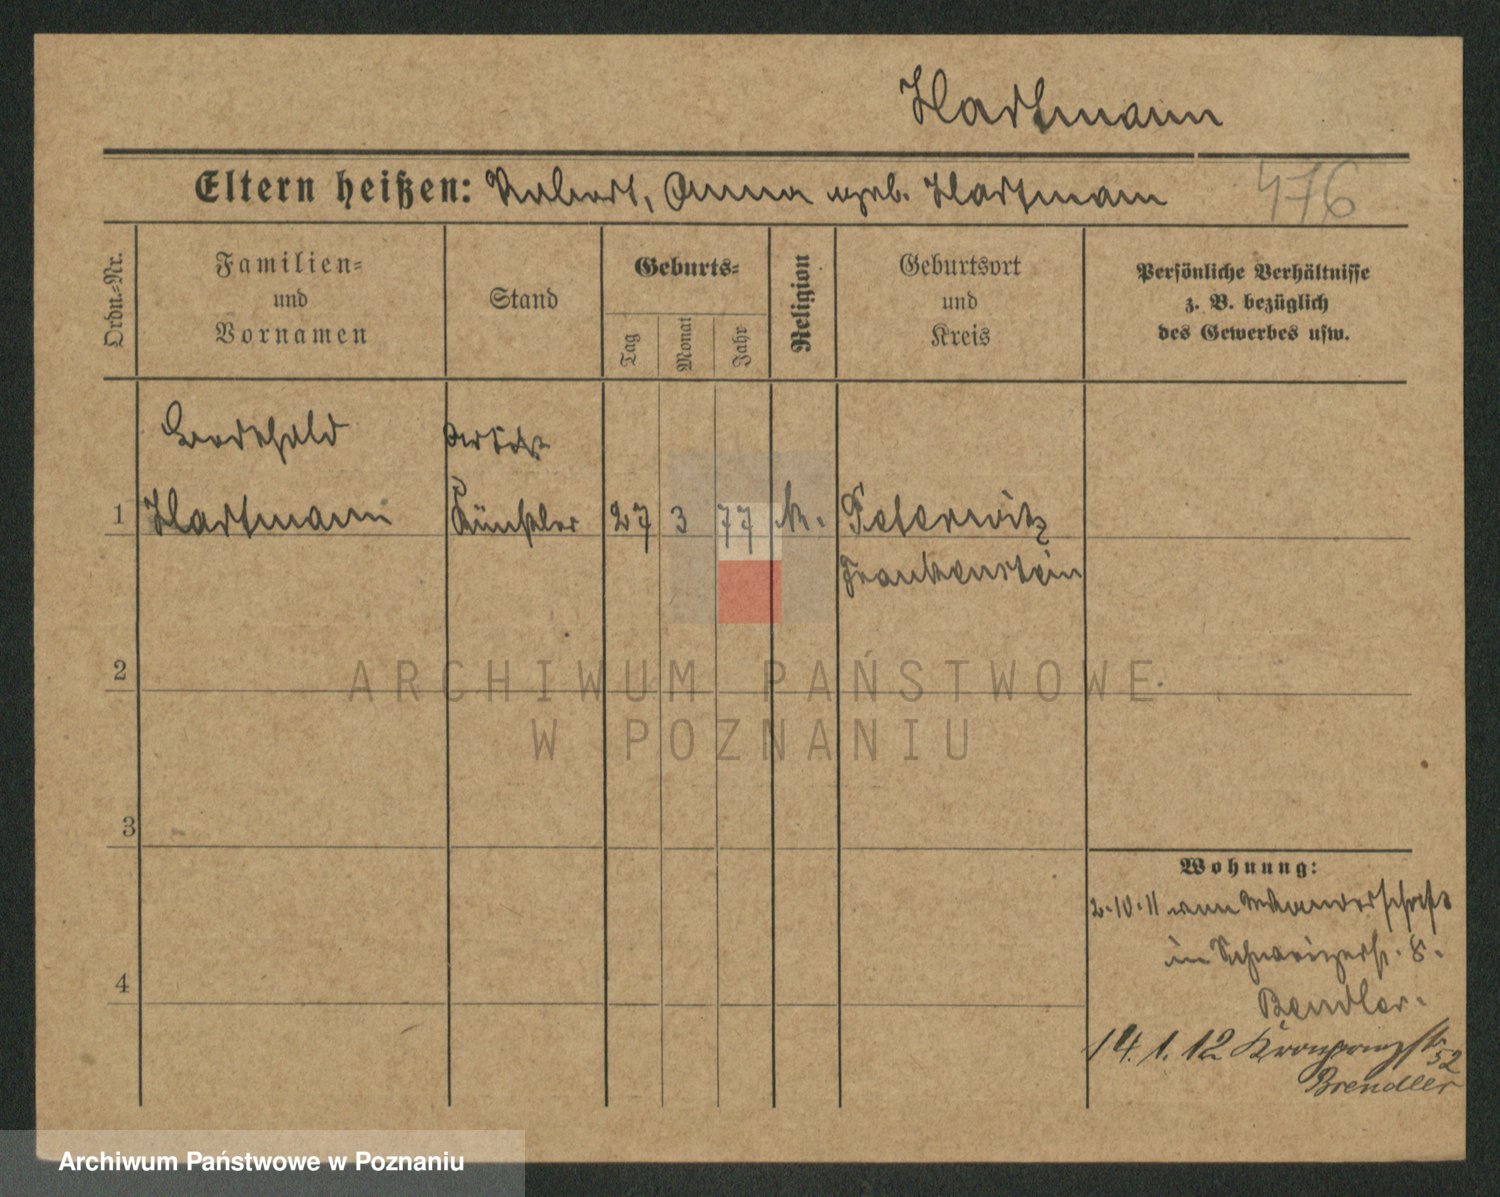 Hartmann
Eltern heißen: Robert, Anna geb. Hartmann 476
Ordn.-Nr.
Familien-
und
Vornamen
Stand
Geburts-
Tag
Monat
Jahr
Religion
Geburtsort
und
Kreis
Persönliche Verhältnisse
z. B. bezüglich
des Gewerbes usw.
1
Hartmann
Künstler
27
3
77
k.
Peterwitz
Frankenstein
2
ARCHIWUM PAŃSTWOWE
W POZNANIU
3
4
Wohnung:
2.10.11 von Wanderschaft
in Schweizerstr. 8.
Bendler.
14.1.12 Kronprinzstr.
52
Brendler
Archiwum Państwowe w Poznaniu